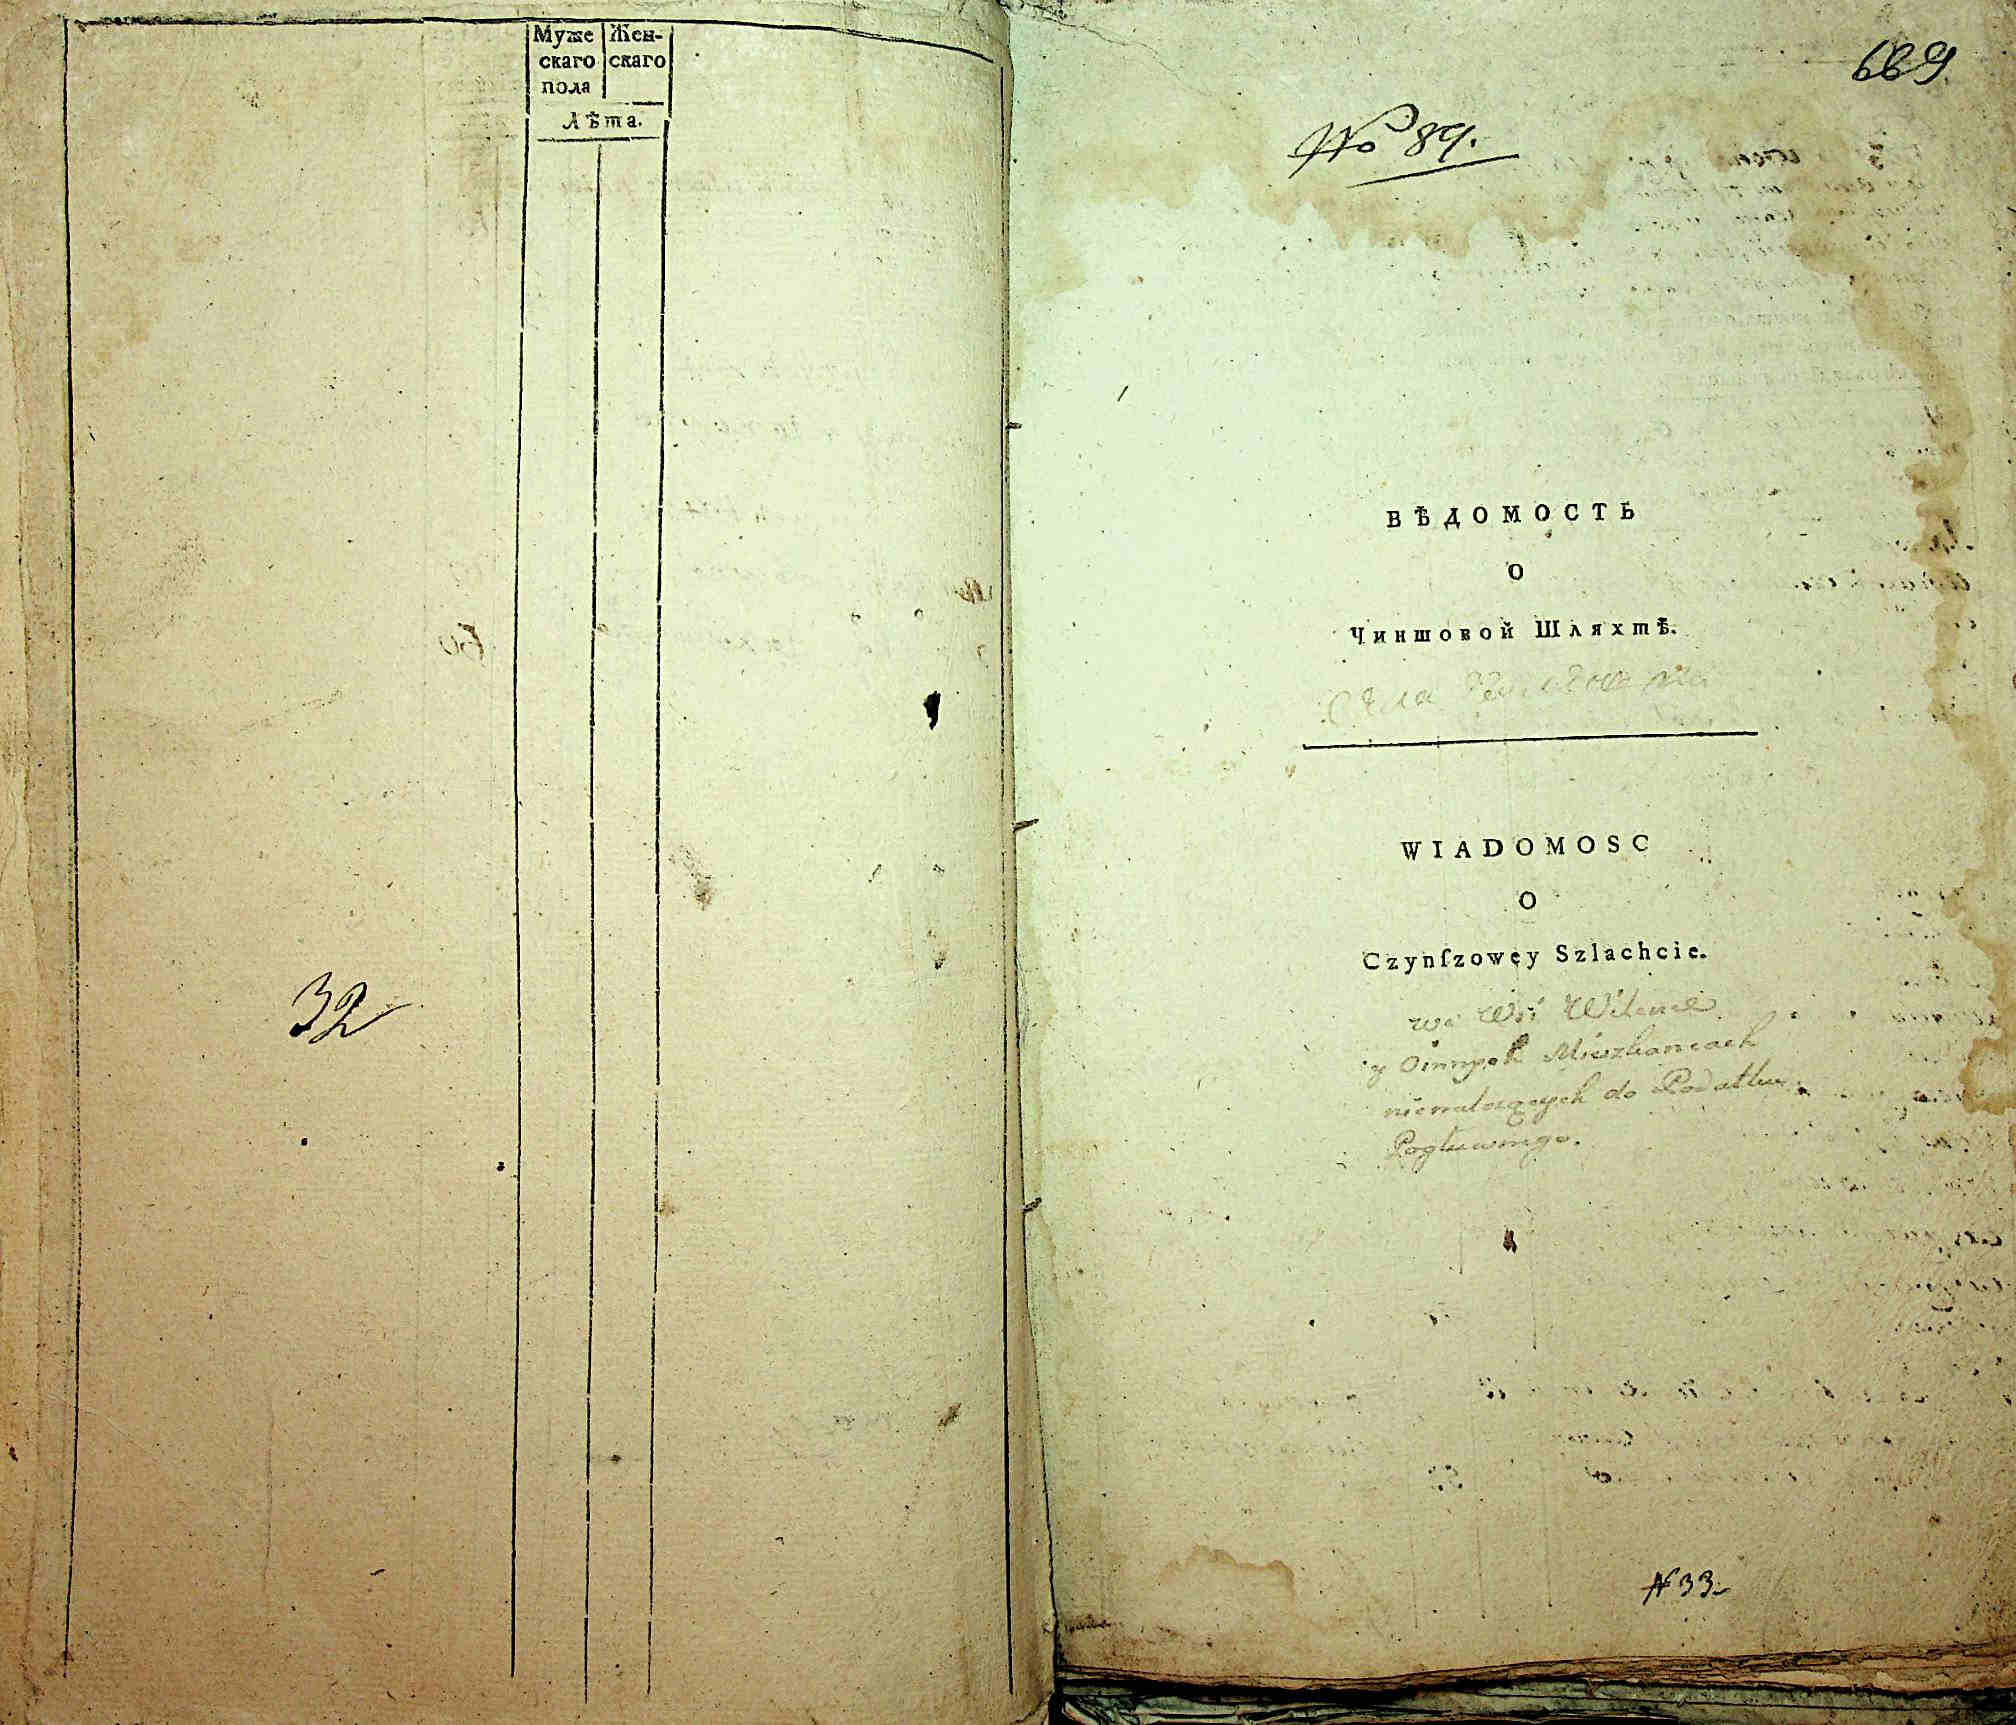 Муже Жен-
скаго скаго
пола
Лѣта.
32
669
No 89.
ВѢДОМОСТЬ
О
Чиншовой Шляхтѣ.
Села
WIADOMOSC
O
Czynſzowey Szlachcie.
we Wsi
y Innych Mieszkancach
nienalezących do Podatku
Pogłuwnego.
N 33